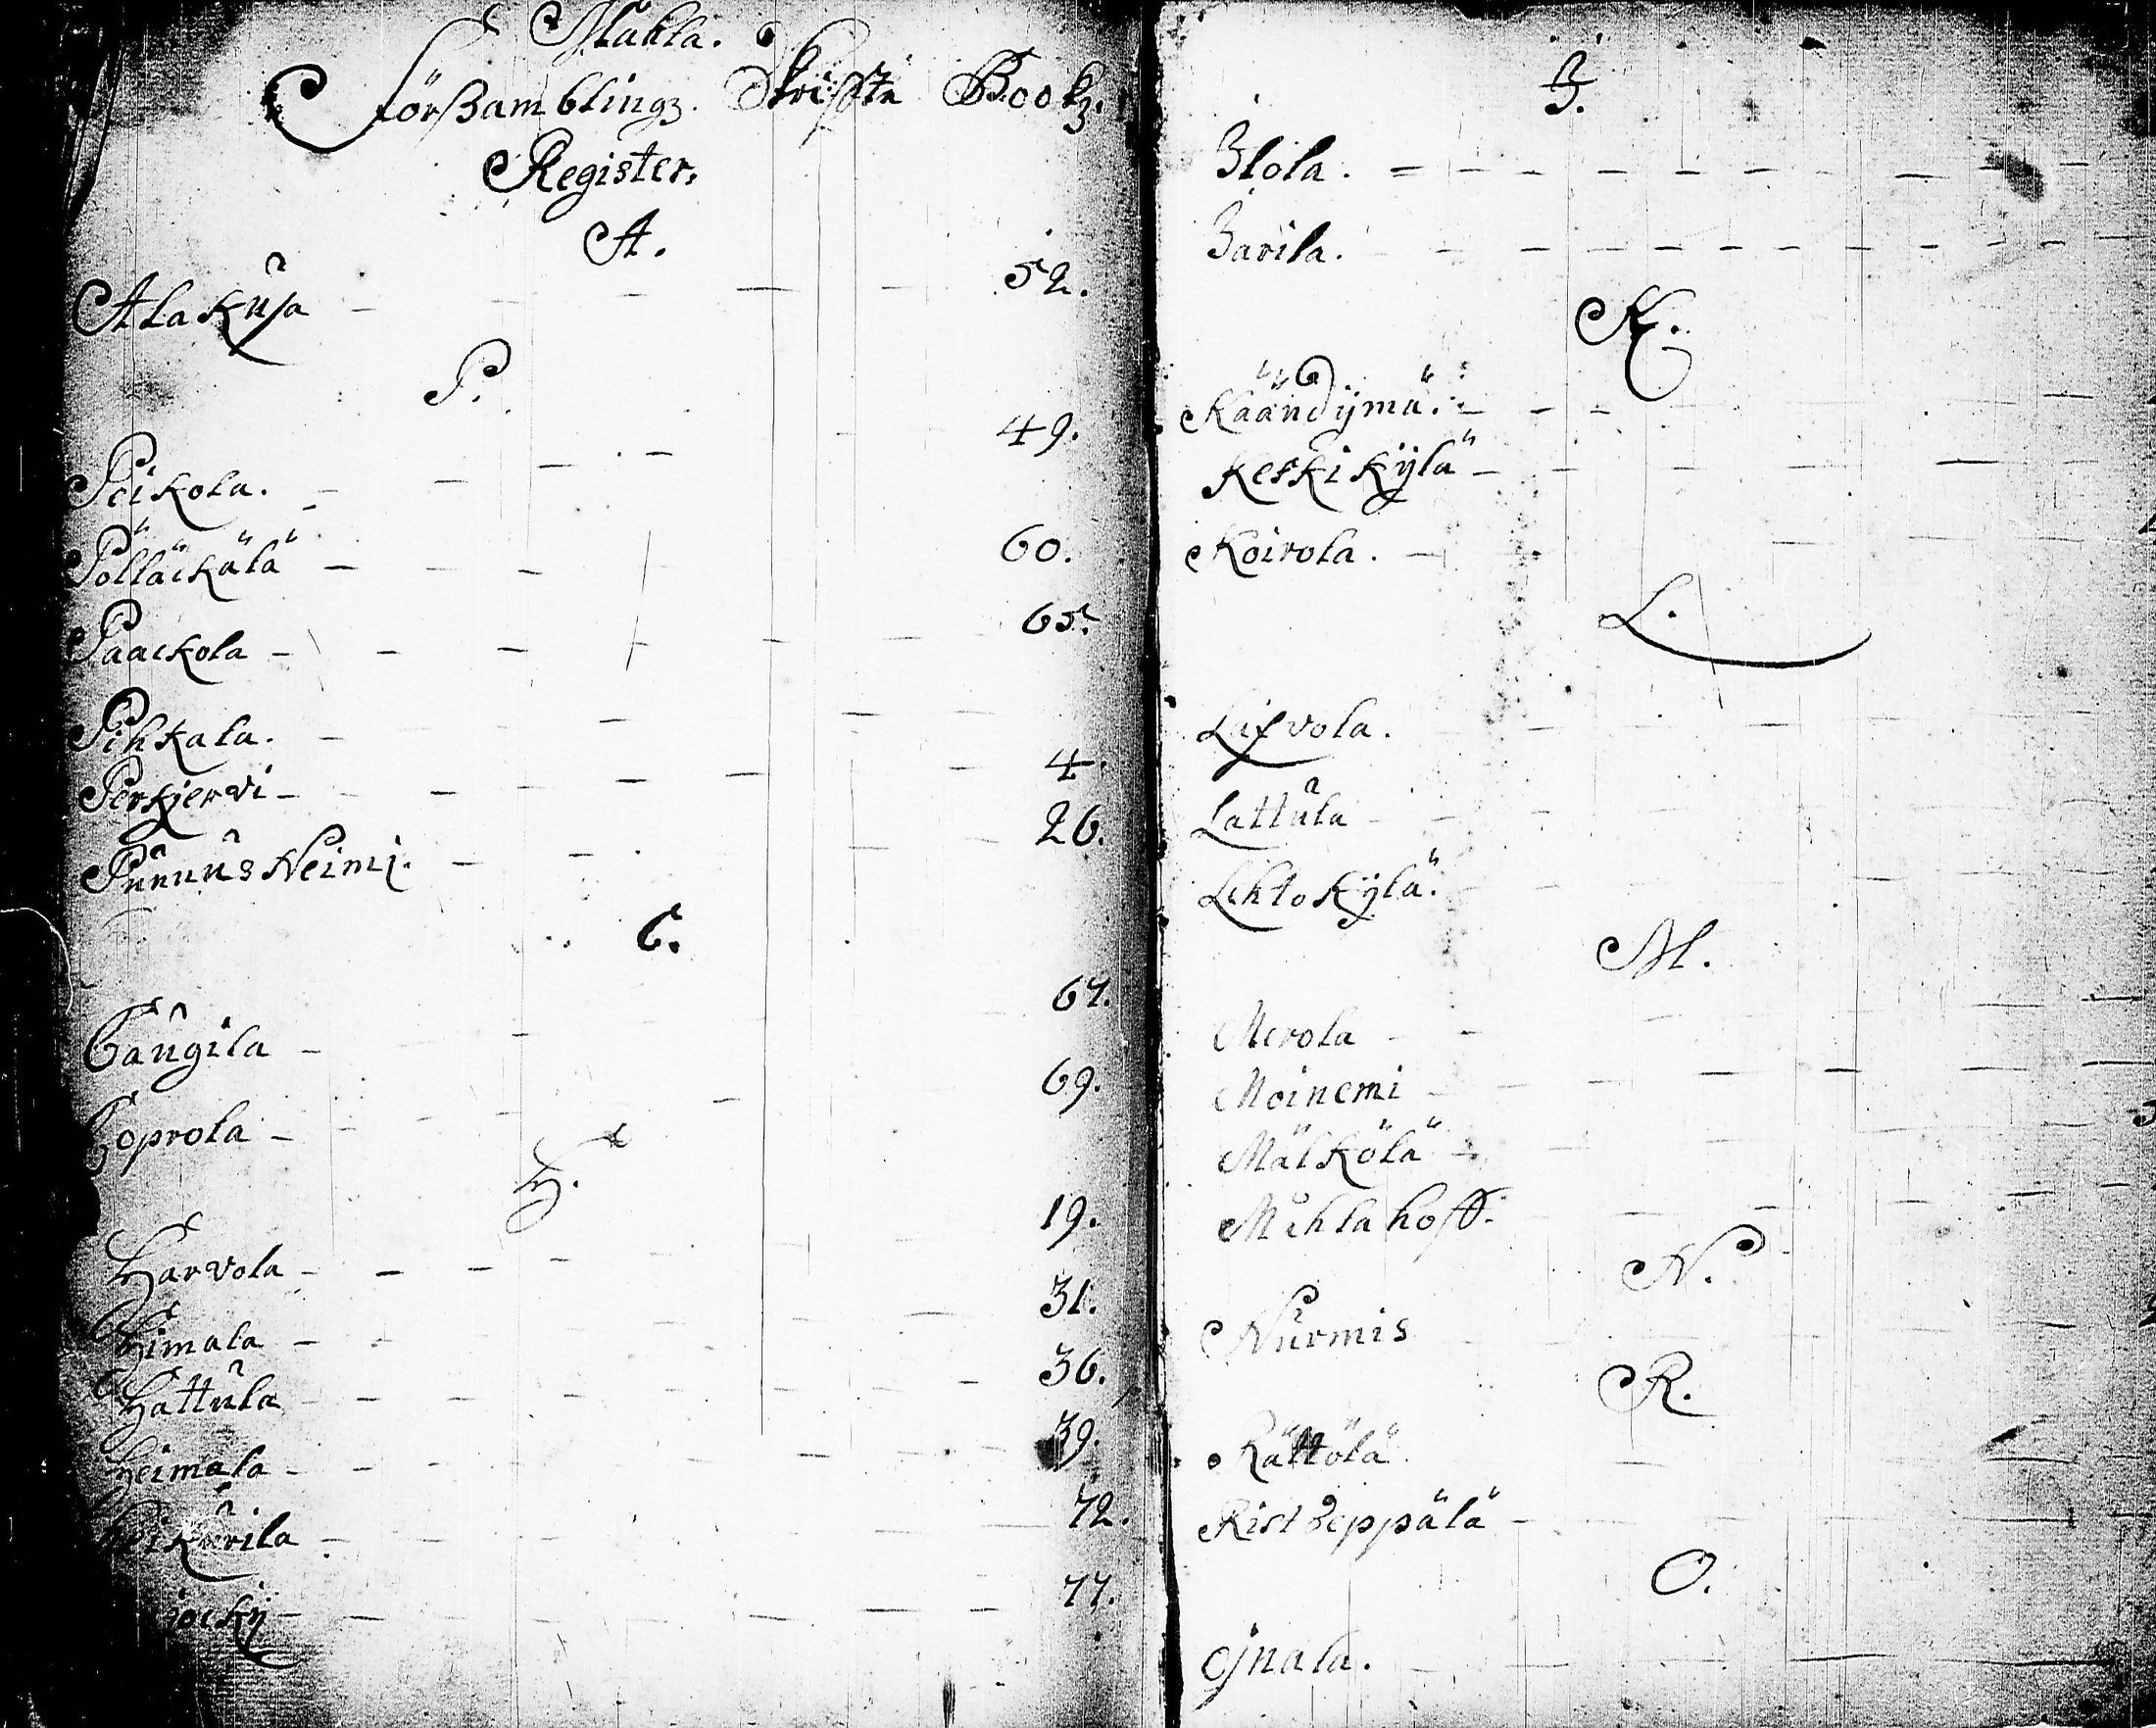 Mahla.
Förßamblingz. Skriffte Bookz.
Register.
A.
Alakusa 52.
P.
Peikola. 49.
Pölläckälä 60.
Paackola 65.
Pihkala.
Perkjervi 4.
PunnusNeimi. 26.
C.
Caugila 67.
Coprola 69.
H.
Harvola 19.
Himala 31.
Hattula 36.
Heimala 39.
72.
77.
I.
Ilola.
Iarila.
K.
Käändymä.
Keskikylä
Koirola.
L.
Lifvola.
Lattula
Lehtokylä.
M.
Merola
Moinemi
Mälkölä
Mahlahoff.
N.
Nurmis
R.
Rättölä
Ristseppälä
O.
Ojnala.